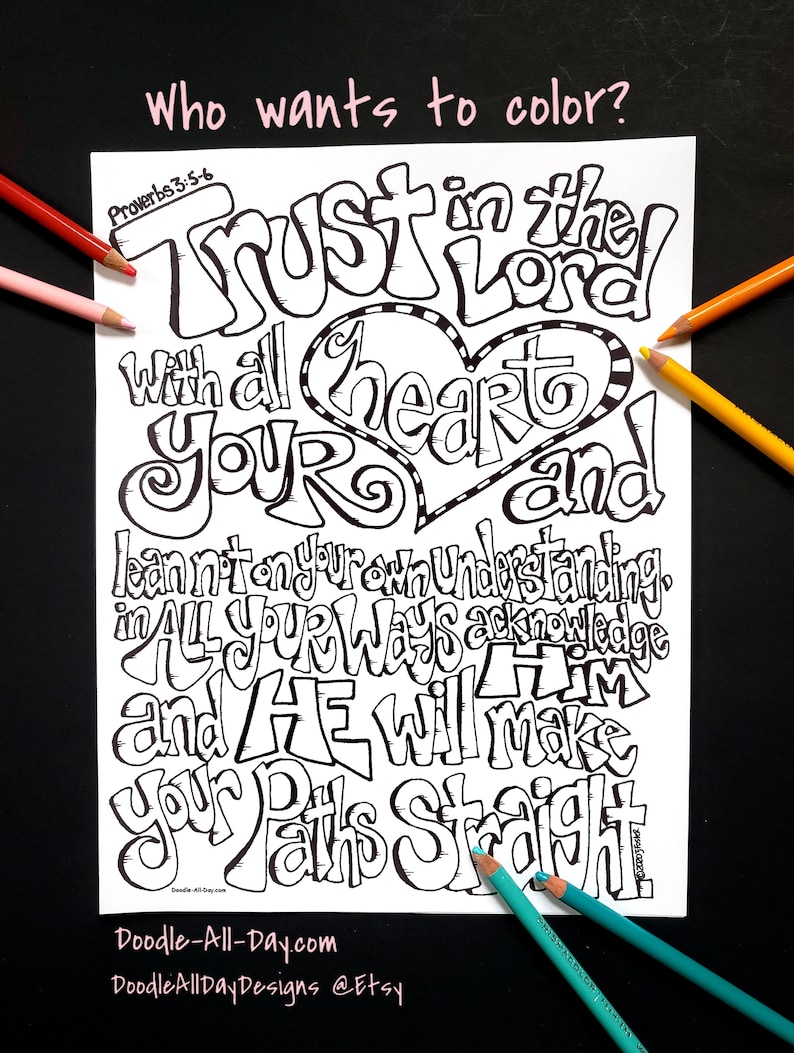 Who wants to color?
Proverbs 3:5-6
Trust in the
Lord
with all heart
your and
lean not on your own understanding,
in ALL YOUR WAYS acknowledge
Him
and HE will make
your Paths Straight.
©2020 J Foster
Doodle-All-Day.com
PRISMACOLOR
Doodle-All-Day.com
DoodleAllDayDesigns @Etsy